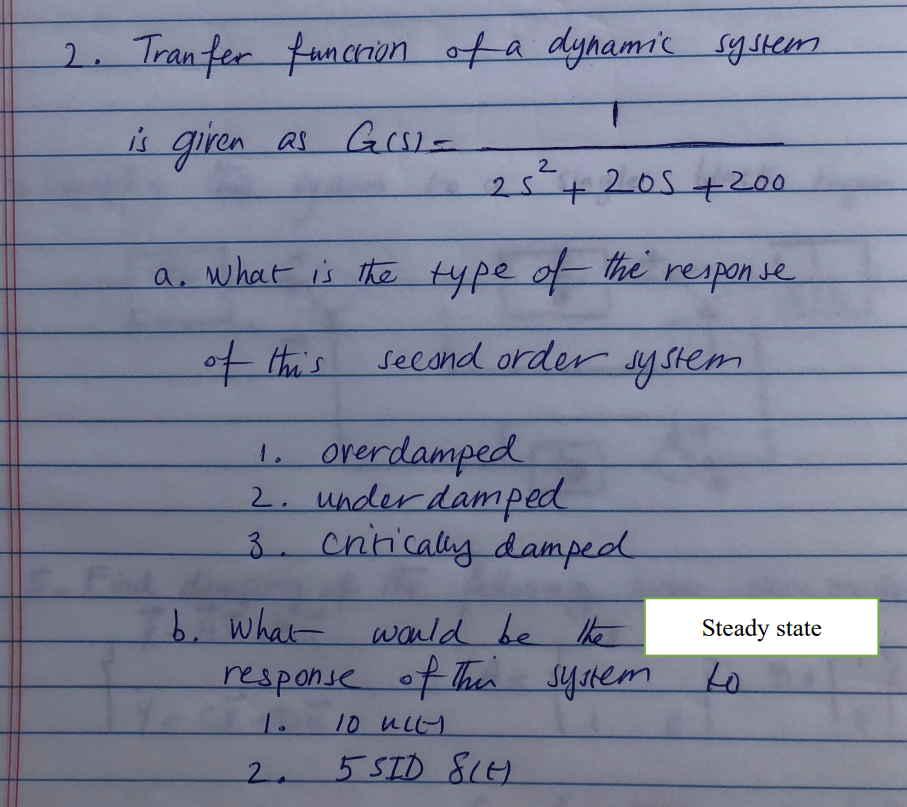 2. Tranfer funcrion of a dynamic system
is given as G(s) = 1 / 2s² + 20s + 200
a. What is the type of the response
of this second order system
1. overdamped
2. underdamped
3. critically damped
b. What would be the Steady state
response of this system to
1. 10 u(t)
2. 5 SID δ(t)